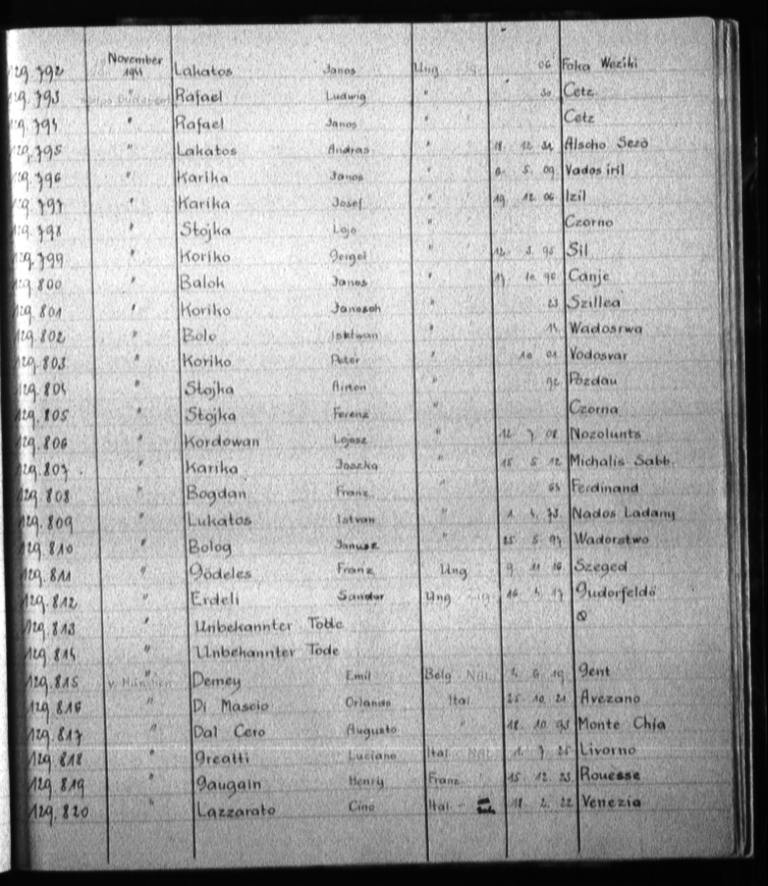 129.792 November 1944 Lakatos Janos Ung 06 Foka Weziki
129.793 " Rafael Ludwig " 30 Cetz
129.794 " Rafael Janos " Cetz
129.795 " Lakatos Andras " 18 12 34 Alscho Sezö
129.796 " Karika Janos " 5. 09 Vados iril
129.797 " Karika Josef " 19 12 06 Izil
129.798 " Stojka Lojo " Czorno
129.799 " Koriko " 12. 95 Sil
129.800 " Balok Janos " 17 Canje
129.801 " Koriko Janosch " 23 Szillea
129.802 " Bolo " Wadosrwa
129.803 " Koriko Peter " 10 01 Vodosvar
129.804 " Stojka Anton " 92 Pozdau
129.805 " Stojka Ferenz " Czorna
129.806 " Kordowan Lojosz " 12 7 08 Nozolunts
129.807 " Karika Joszka " 15 5 12 Michalis Sabb.
129.808 " Bogdan Franz " Ferdinand
129.809 " Lukatos Istvan " 1 73. Nados Ladany
129.810 " Bolog Janusz " 25 5. 97 Wadorstwo
129.811 " Gödeles Franz Ung 9 11 Szeged
129.812 " Erdeli Sandor Ung Zig. 16 17 Gudorfeldö
129.813 " Unbekannter Tote
129.814 " Unbekannter Tode
129.815 " v. München Demey Emil Belg 6 19 Gent
129.816 " Di Mascio Orlando Ital 25 10. 21 Avezano
129.817 " Dal Cero Augusto " 18. 10 93 Monte Chia
129.818 " Greatti Luciano Ital 1. 7 25 Livorno
129.819 " Gaugain Henry Franz 15 12 23. Rouesse
129.820 " Lazzarato Cino Ital 18 2. 22 Venezia